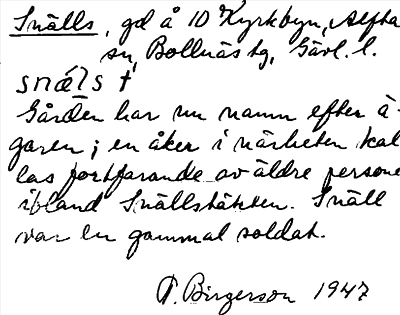 Snälls, gd å 10 Kyrkbyn, Alfta
sn, Bollnäs tg, Gävl. l.
snǽls †
Gården har nu namn efter ä-
garen; en åker i närheten kal
las fortfarande av äldre persone
ibland Snällstäkten. Snäll
var en gammal soldat.
P. Birgerson 1947